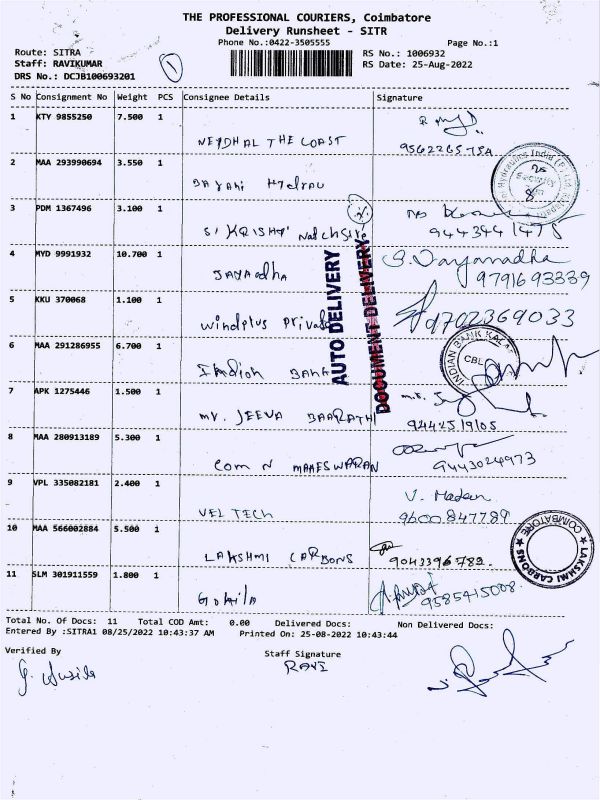 THE PROFESSIONAL COURIERS, Coimbatore
Delivery Runsheet - SITR
Phone No.:0422-3505555 Page No.:1
Route: SITRA RS No.: 1006932
Staff: RAVIKUMAR 1 RS Date: 25-Aug-2022
DRS No.: DCJB100693201
S No Consignment No Weight PCS Consignee Details Signature
1 KTY 9855250 7.500 1
NEYDHAL THE COAST 9562265754
2 MAA 293990694 3.550 1
Hydrau
Hydraulics India (P) Ltd
Security
3 PDM 1367496 3.100 1
S. KRISHN 9443441475
4 MYD 9991932 10.700 1 S. Jayaradha
JAYARDHA 9791693339
AUTO DELIVERY
DOCUMENT DELIVERY
5 KKU 370068 1.100 1
windplus Private 9702369033
6 MAA 291286955 6.700 1
INDIAN BANK
CBE
Indian BANK
7 APK 1275446 1.500 1
MR. JEEVA BAARATHI 9442519105
8 MAA 280913189 5.300 1
Com N MAHESWARAN 9443024973
9 VPL 335082181 2.400 1 V. Madan
VEL TECH 9600847789
10 MAA 566002884 5.500 1
LAKSHMI CARBONS 9043396782
★ LAKSHMI CARBONS ★ COIMBATORE
11 SLM 301911559 1.800 1
Gokila 9585415008
Total No. Of Docs: 11 Total COD Amt: 0.00 Delivered Docs: Non Delivered Docs:
Entered By :SITRA1 08/25/2022 10:43:37 AM Printed On: 25-08-2022 10:43:44
Verified By Staff Signature
RAVI